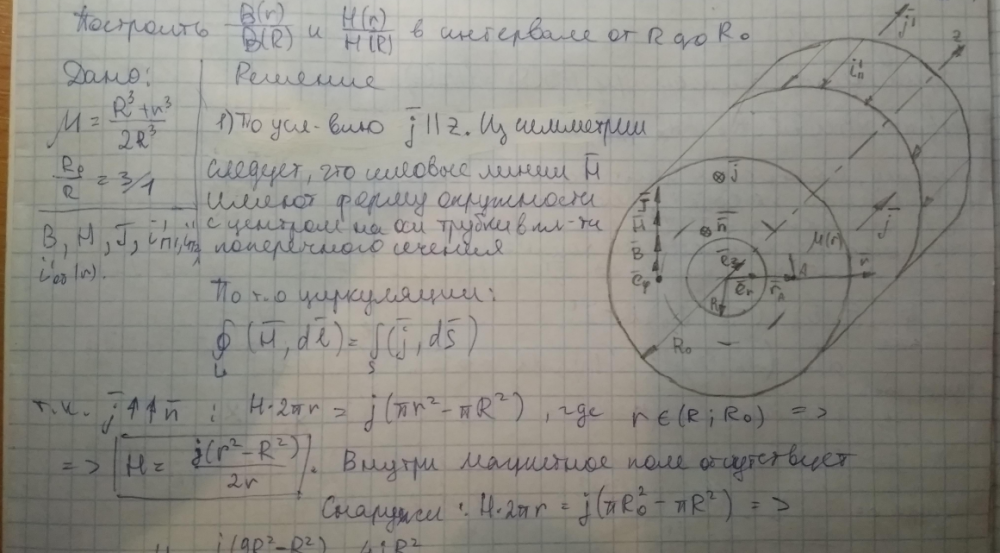 Построить B(r)/B(R) и H(r)/H(R) в интервале от R до R₀
Дано:
μ = (R³ + r³)/(2R³)
R₀/R = 3/1
B, H, J, i'п1, i'п2,
i'об(r).
Решение
1) По усл-вию j̄ || z. Из симметрии
следует, что силовые линии H̄
имеют форму окружности
с центром на оси трубки в пл-ти
поперечного сечения
По т.о циркуляции:
∮L (H̄, dl̄) = ∫S (j̄, ds̄)
т.к. j̄ ↑↑ n̄ : H·2πr = j(πr² − πR²), где r ∈ (R; R₀) =>
=> H = j(r² − R²)/2r. Внутри магнитное поле отсутствует
Снаружи: H·2πr = j(πR₀² − πR²) =>
j(9R² − R²) 4jR²
j̄'
z
i'п
⊗ j̄
J̄
H̄
n̄
B̄
ēφ
ēz
ēr
r̄A
A
μ(r)
j̄
r̄
R
R₀